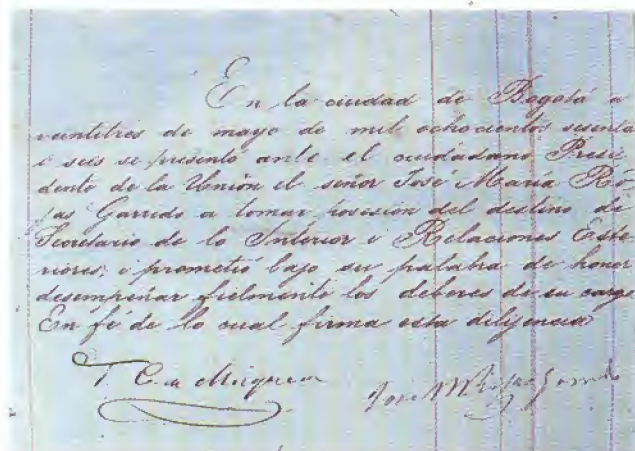 En la ciudad de Bogotá a
veintitres de mayo de mil ochocientos sesenta
i seis se presentó ante el ciudadano Presi
dente de la Union el señor José María Ró
jas Garrido a tomar posesion del destino de
Secretario de lo Interior i Relaciones Este
riores, i prometió bajo su palabra de honor
desempeñar fielmente los deberes de su cargo
En fé de lo cual firma esta dilijencia
T. C. de Mosquera
José M Rojas Garrido